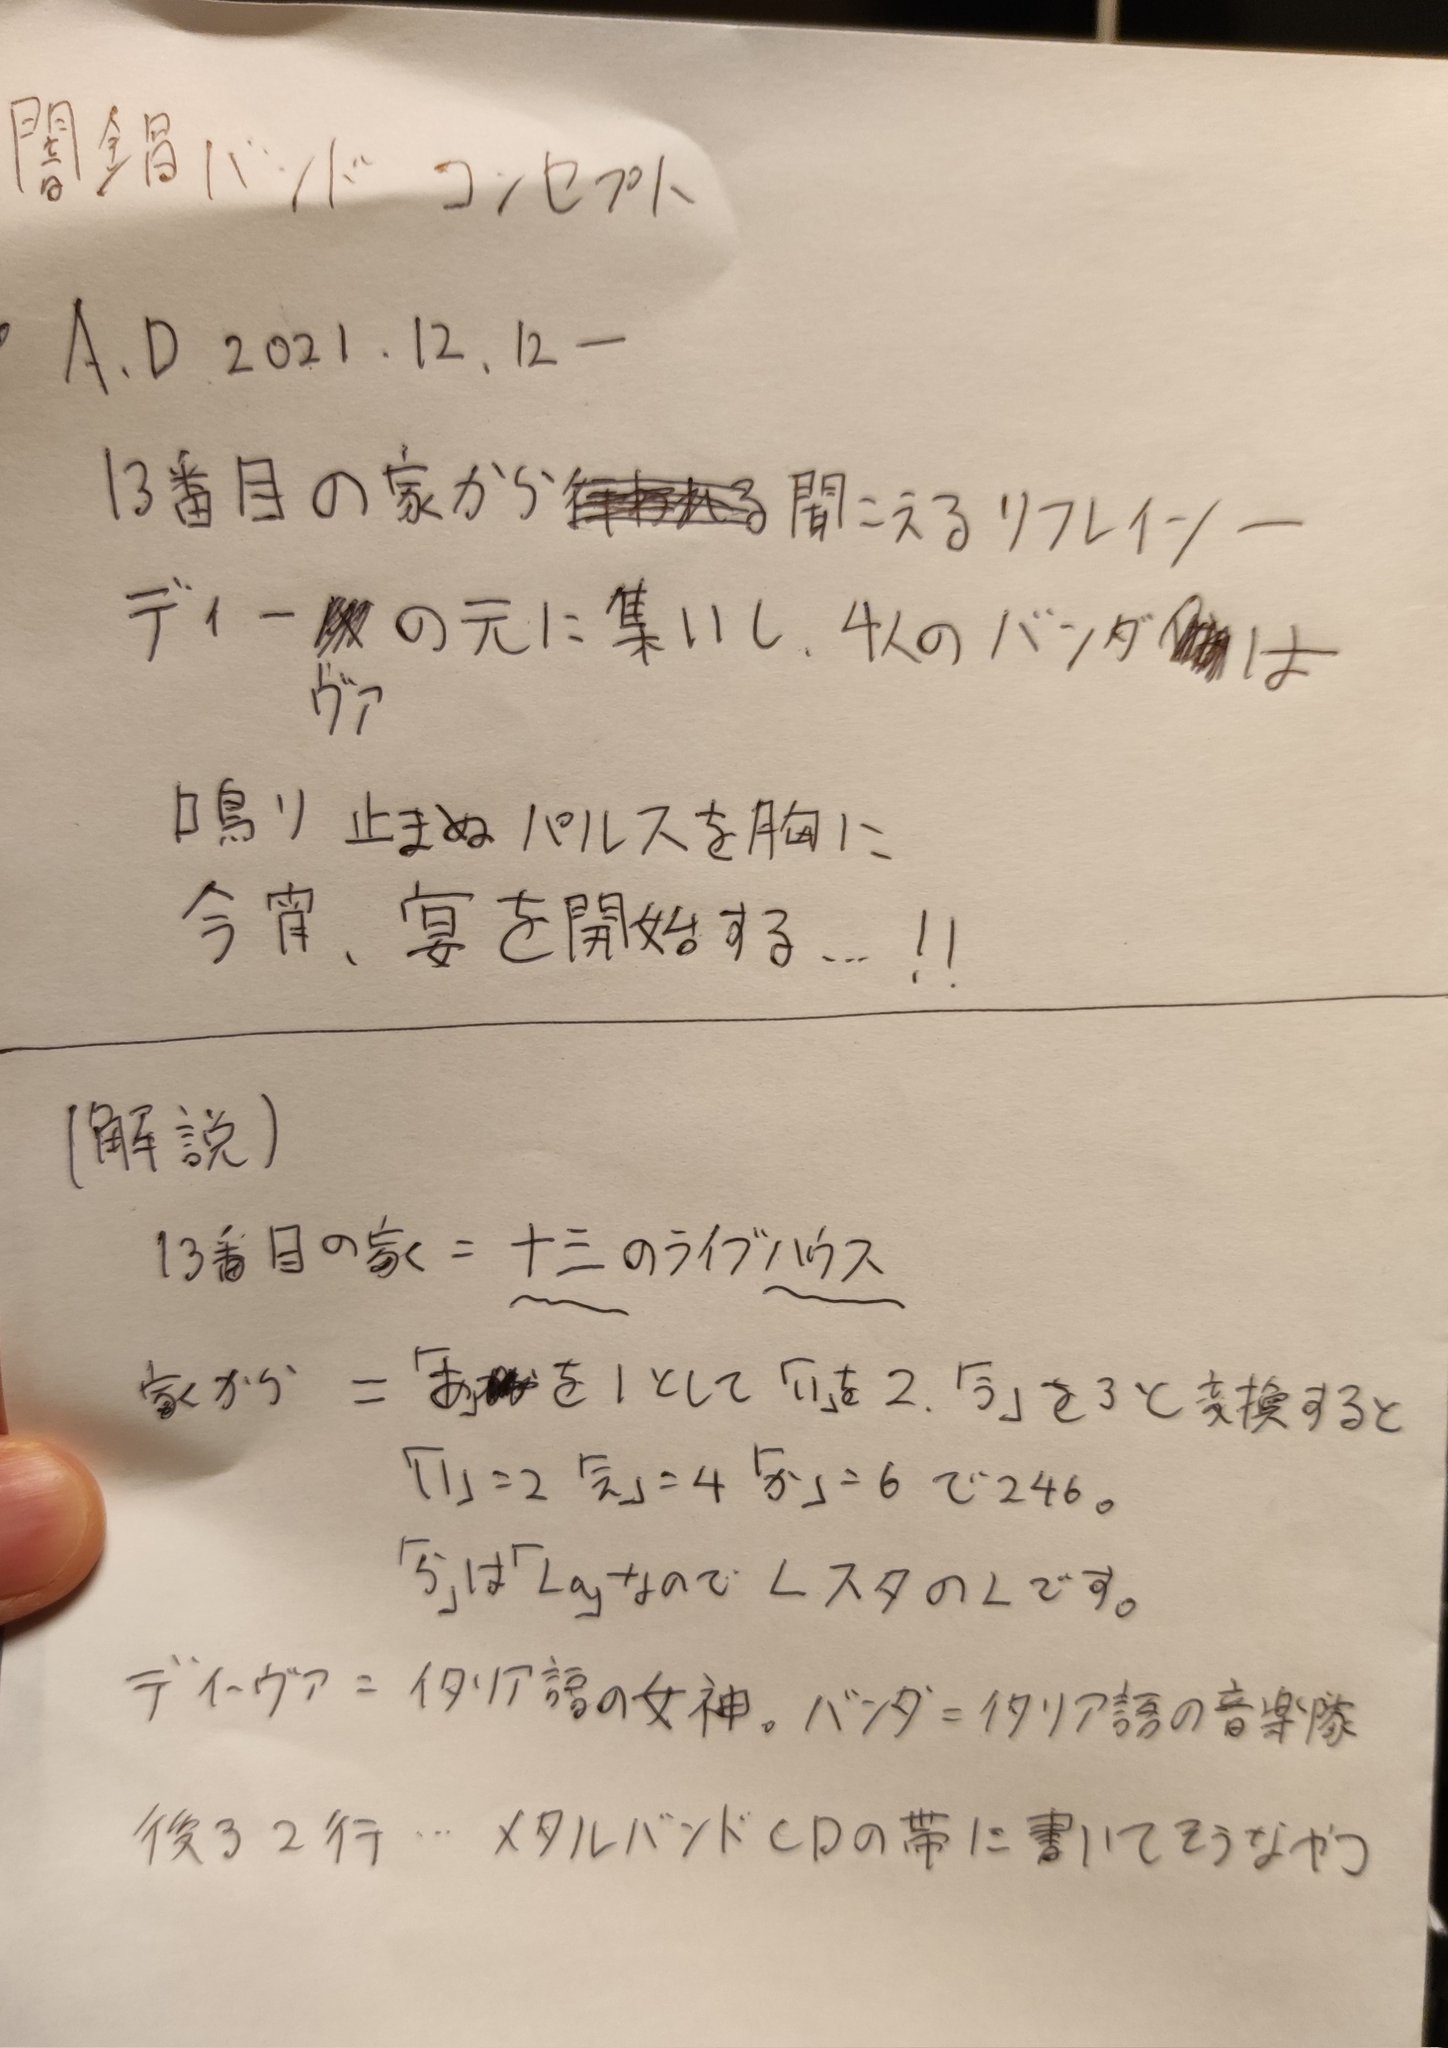 闇鍋バンド コンセプト
A.D 2021.12.12ー
13番目の家から聞こえるリフレインー
ディーヴァの元に集いし、4人のバンダは
鳴り止まぬパルスを胸に
今宵、宴を開始する…!!
(解説)
13番目の家 = 十三のライブハウス
家から = 「あ」を1として「い」を2、「う」を3と変換すると
「い」=2「え」=4「か」=6で246。
「ら」は「La」なのでLスタのLです。
ディーヴァ = イタリア語の女神。バンダ = イタリア語の音楽隊
後ろ2行… メタルバンドCDの帯に書いてそうなやつ